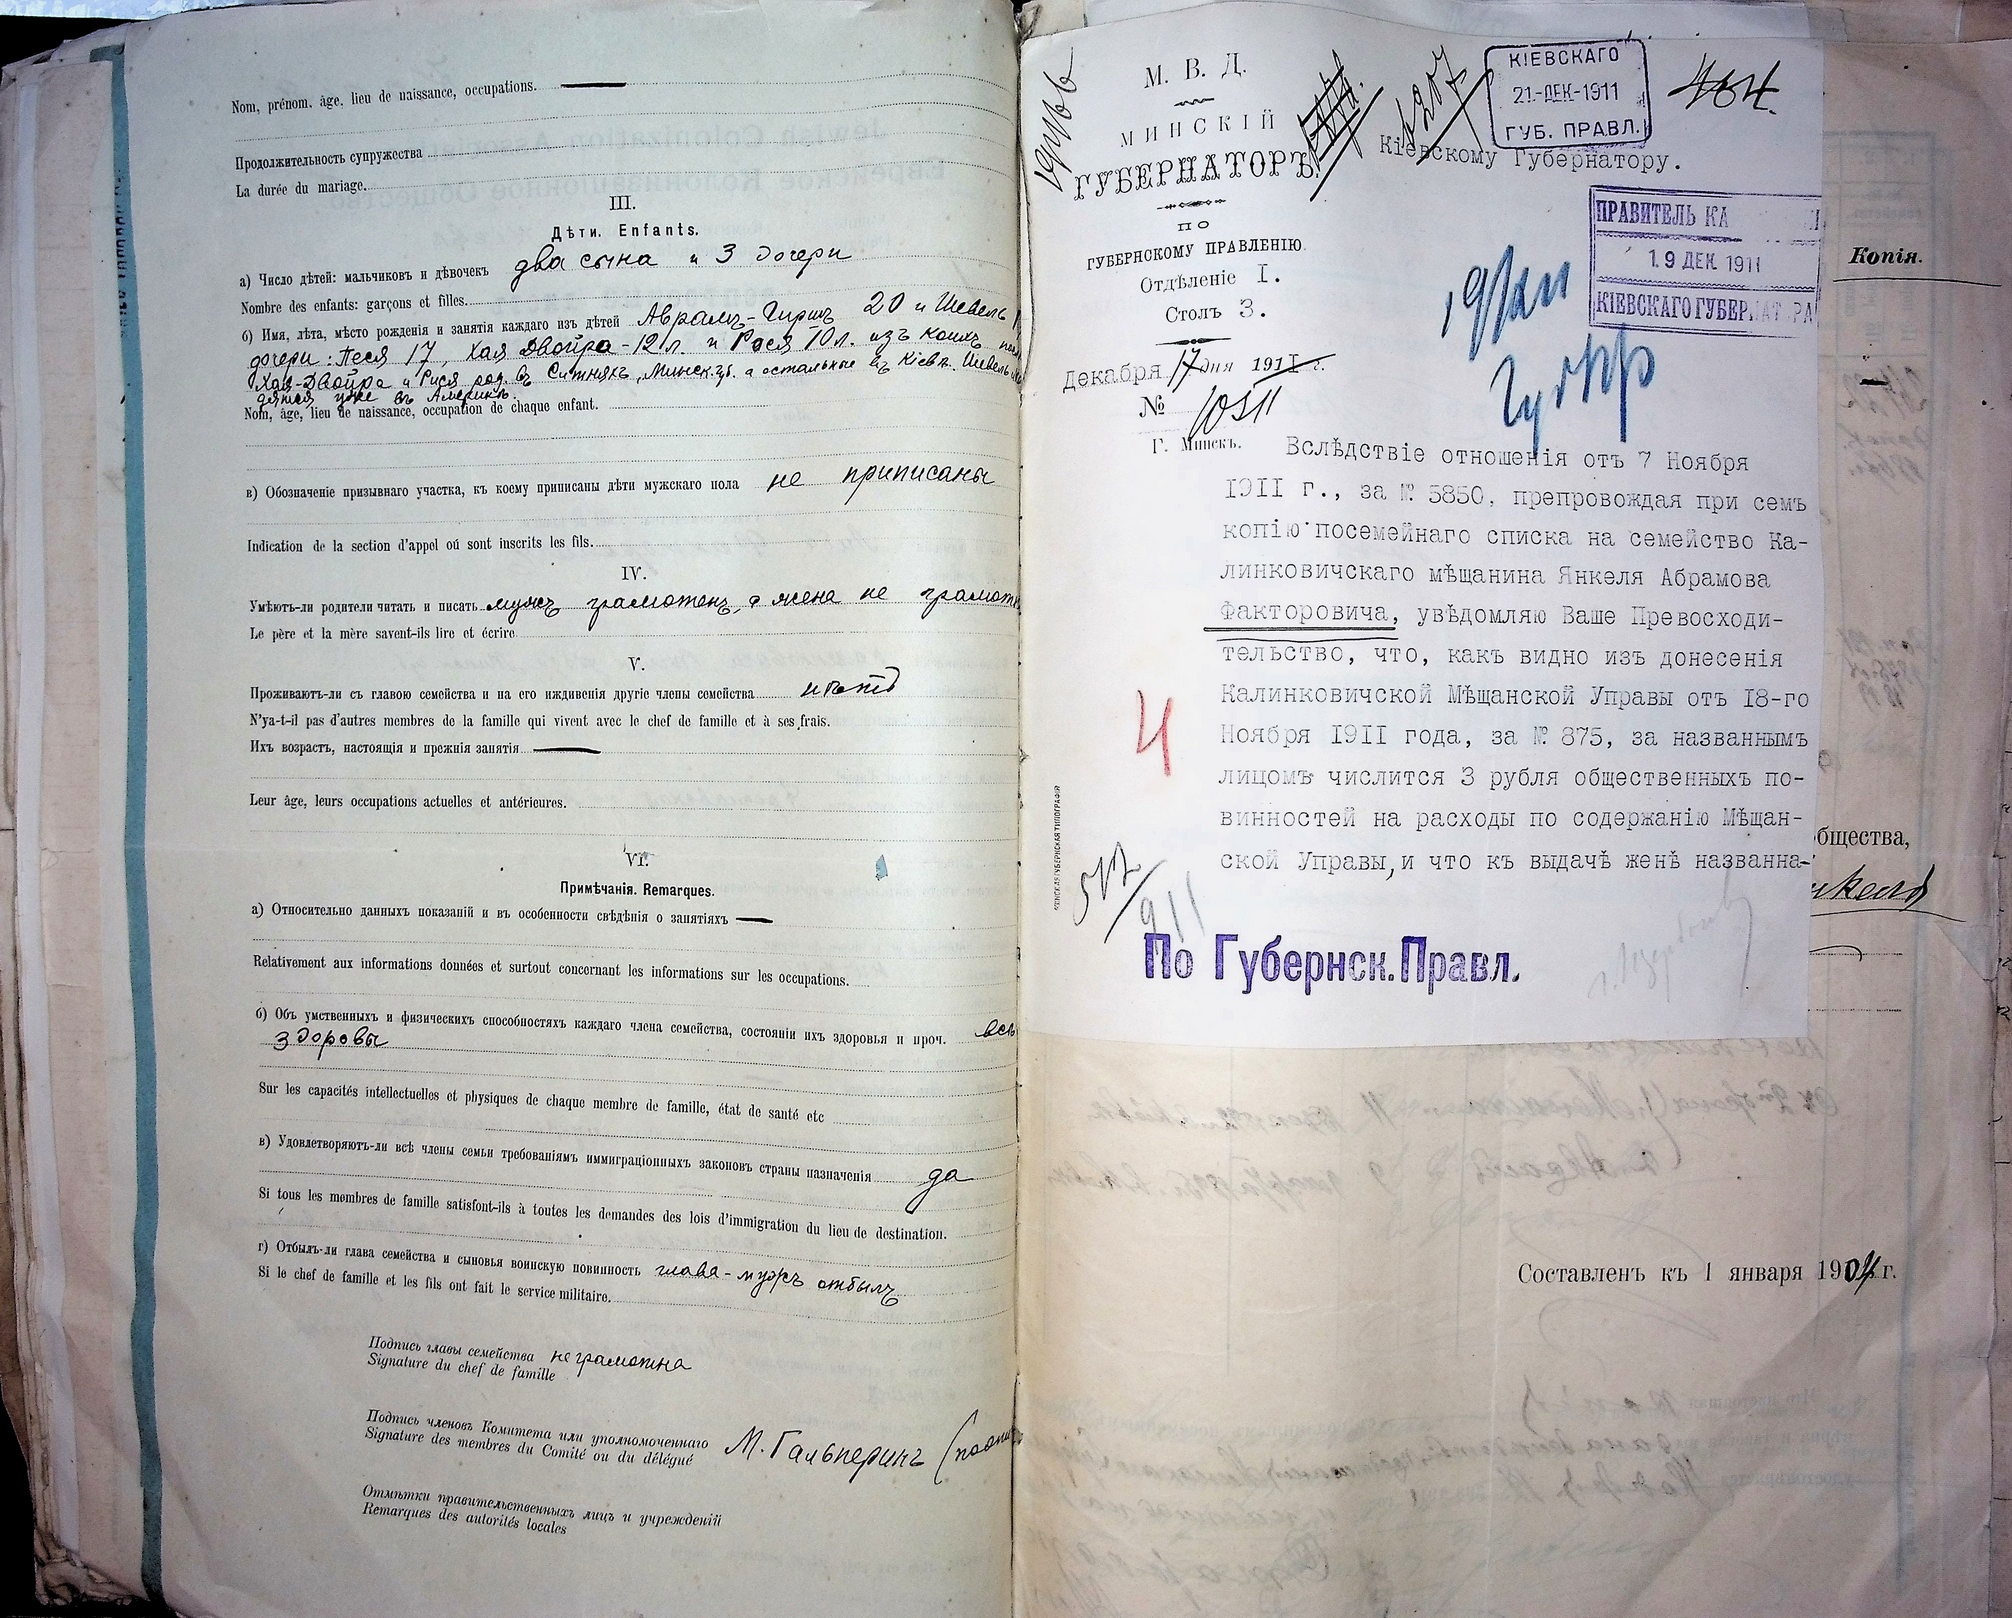 Nom, prénom. âge. lieu de naissance, occupations.
Продолжительность супружества
La durée du mariage.
III.
Дѣти. Enfants.
а) Число дѣтей: мальчиковъ и дѣвочекъ два сына и 3 дочери
Nombre des enfants: garçons et filles.
б) Имя, лѣта, мѣсто рожденія и занятія каждаго изъ дѣтей Аврамъ-Гиршъ 20 и Шевель
дочери: Песя 17, Хая Двойра - 12 л. и Рася 10 л. изъ коихъ
Хая-Двойра и Рися род. въ Ситнякъ, Минск. губ. а остальные въ Кіевѣ. Шевель
дятся уже въ Америкѣ.
Nom, âge, lieu de naissance, occupation de chaque enfant.
в) Обозначеніе призывнаго участка, къ коему приписаны дѣти мужскаго пола не приписаны
Indication de la section d'appel oú sont inscrits les fils.
IV.
Умѣютъ-ли родители читать и писать мужъ грамотенъ, а жена не
Le père et la mère savent-ils lire et écrire
V.
Проживаютъ-ли съ главою семейства и на его иждивенія другіе члены семейства нѣтъ
N'ya-t-il pas d'autres membres de la famille qui vivent avec le chef de famille et à ses frais.
Ихъ возрастъ, настоящія и прежнія занятія
Leur âge, leurs occupations actuelles et antérieures.
VI.
Примѣчанія. Remarques.
а) Относительно данныхъ показаній и въ особенности свѣдѣнія о занятіяхъ
Relativement aux informations données et surtout concernant les informations sur les occupations.
б) Объ умственныхъ и физическихъ способностяхъ каждаго члена семейства, состояніи ихъ здоровья и проч. всѣ
здоровы
Sur les capacités intellectuelles et physiques de chaque membre de famille, état de santé etc
в) Удовлетворяютъ-ли всѣ члены семьи требованіямъ иммиграціонныхъ законовъ страны назначенія да
Si tous les membres de famille satisfont-ils à toutes les demandes des lois d'immigration du lieu de destination.
г) Отбылъ-ли глава семейства и сыновья воинскую повинность глава-мужъ отбылъ
Si le chef de famille et les fils ont fait le service militaire.
Подпись главы семейства неграмотна
Signature du chef de famille
Подпись членовъ Комитета или уполномоченнаго
Signature des membres du Comité ou du délégué М. Гальперинъ
Отмѣтки правительственныхъ лицъ и учрежденій
Remarques des autorités locales
М. В. Д.
МИНСКІЙ
ГУБЕРНАТОРЪ.
ПО
ГУБЕРНСКОМУ ПРАВЛЕНІЮ.
Отдѣленіе I.
Столъ 3.
Декабря 17 дня 1911 г.
№ 10311
Г. Минскъ.
КІЕВСКАГО
21-ДЕК-1911
ГУБ. ПРАВЛ.
464.
Кіевскому Губернатору.
ПРАВИТЕЛЬ КА
19 ДЕК 1911
КІЕВСКАГО ГУБЕРНАТОРА
19/XII
Вслѣдствіе отношенія отъ 7 Ноября
1911 г., за № 5850, препровождая при семъ
копію посемейнаго списка на семейство Ка-
линковичскаго мѣщанина Янкеля Абрамова
Факторовича, увѣдомляю Ваше Превосходи-
тельство, что, какъ видно изъ донесенія
Калинковичской Мѣщанской Управы отъ 18-го
Ноября 1911 года, за № 875, за названнымъ
лицомъ числится 3 рубля общественныхъ по-
винностей на расходы по содержанію Мѣщан-
ской Управы, и что къ выдачѣ женѣ названна-
По Губернск. Правл.
Копія.
общества,
Составленъ къ 1 января 1904 г.